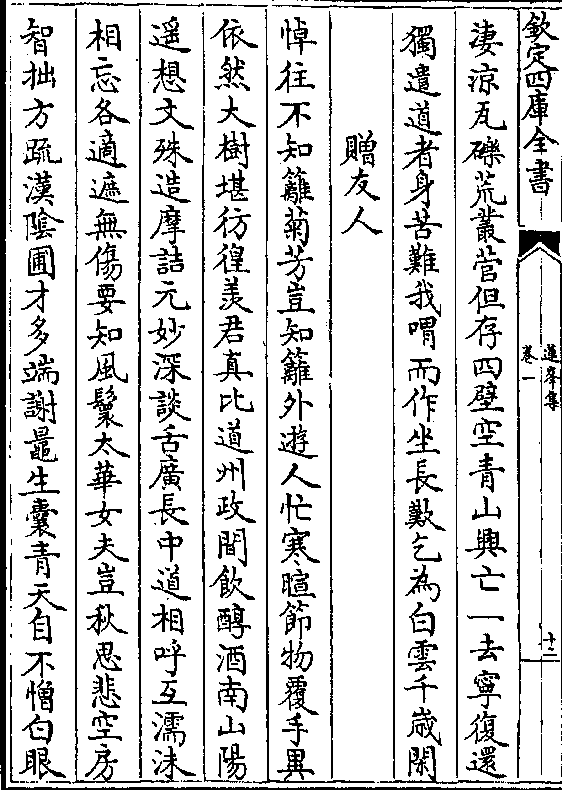 欽定四庫全書
蓮峯集
卷一
十二
淒涼瓦礫荒叢菅但存四壁空青山興亡一去寧復還
獨遣道者身苦難我喟而作坐長歎乞為白雲千歲閑
贈友人
悼往不知籬菊芳豈知籬外遊人忙寒暄節物覆手異
依然大樹堪彷徨羨君真比道州政閒飲醇酒南山陽
遥想文殊造摩詰元妙深談舌廣長中道相呼互濡沬
相忘各適遮無傷要知風鬟太華女夫豈秋思悲空房
智拙方疏漢陰圃才多端謝鼂生囊青天自不憎白眼